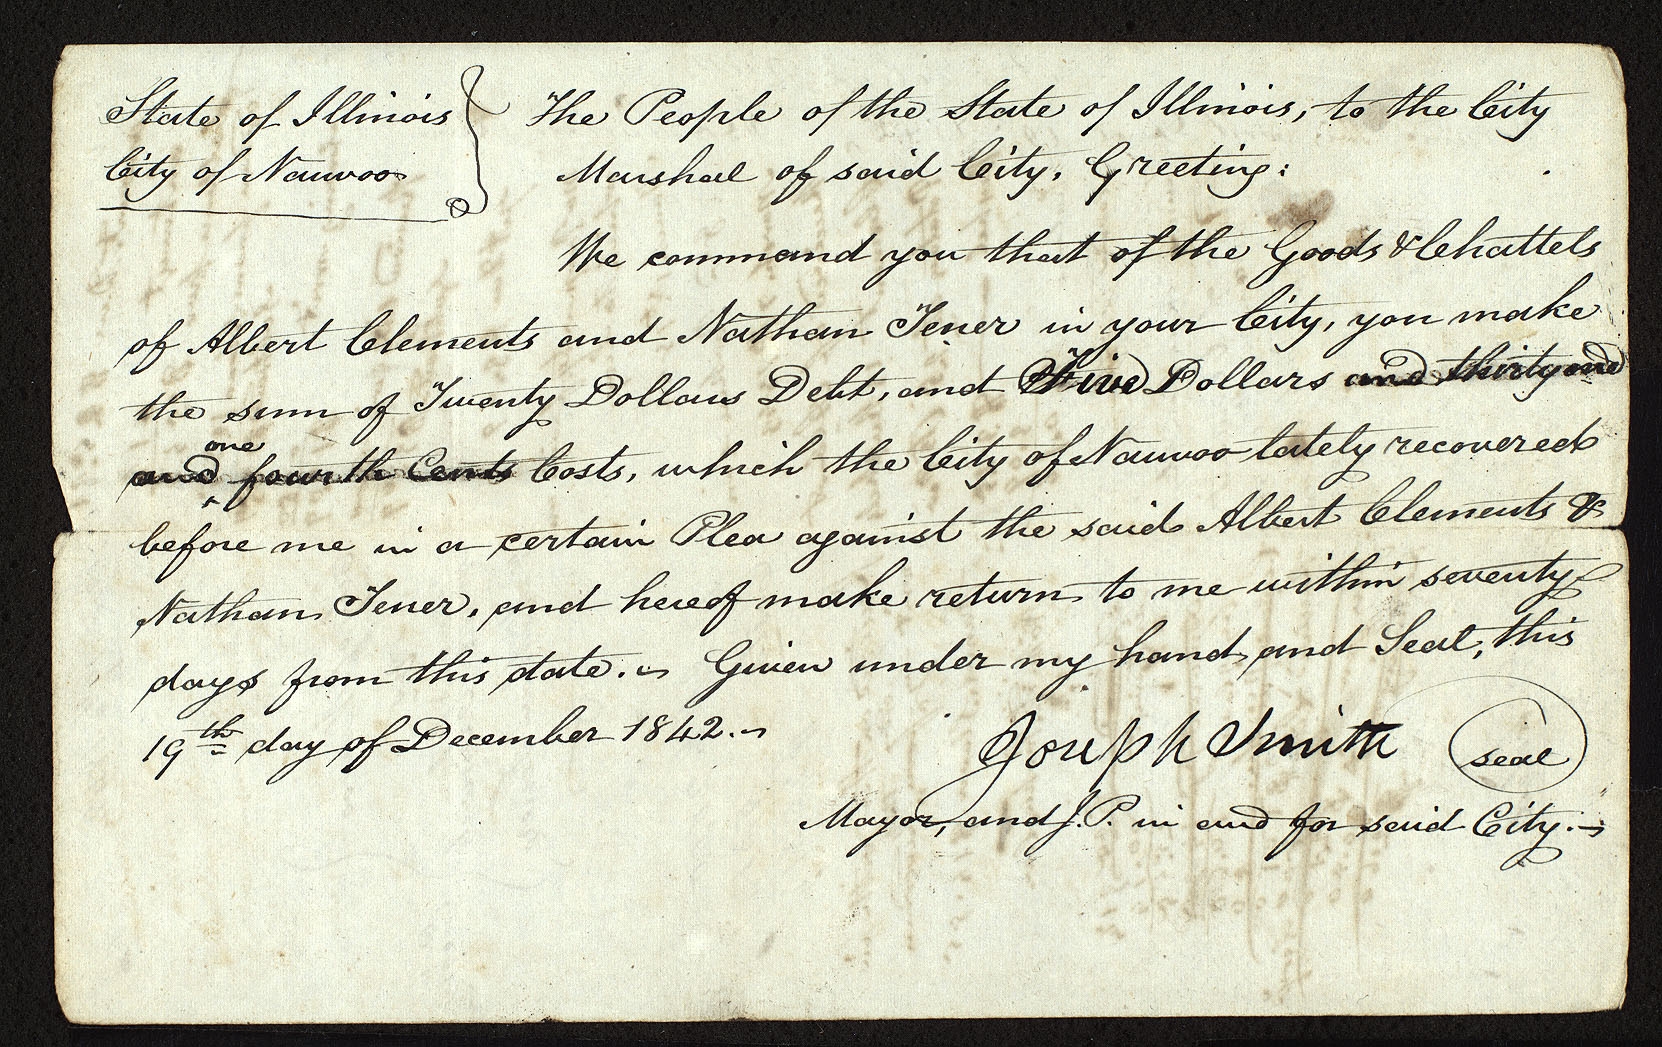 State of Illinois } The People of the State of Illinois, to the City
City of Nauvoo Marshal of said City, Greeting:
We command you that of the Goods & Chattels
of Albert Clements and Nathan Tener in your City, you make
the sum of Twenty Dollars Debt, and Five Dollars and thirty one
and one fourth Cents Costs, which the City of Nauvoo lately recovered
before me in a certain Plea against the said Albert Clements &
Nathan Tener, and hereof make return to me within seventy
days from this date. Given under my hand and Seal, this
19th day of December 1842.
Joseph Smith seal
Mayor, and J. P. in and for said City.